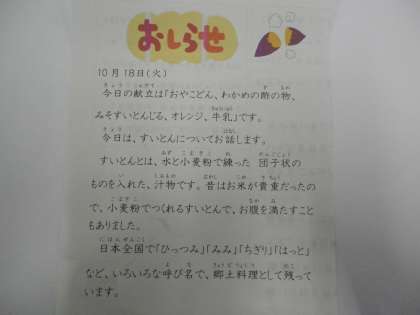 おしらせ
10月18日(火)
今日の献立は「おやこどん、わかめの酢の物、
みそすいとんじる、オレンジ、牛乳」です。
今日は、すいとんについてお話します。
すいとんとは、水と小麦粉で練った 団子状の
ものを入れた、汁物です。昔はお米が貴重だったの
で、小麦粉でつくれるすいとんで、お腹を満たすこと
もありました。
日本全国で「ひっつみ」「みみ」「ちぎり」「はっと」
など、いろいろな呼び名で、郷土料理として残って
います。